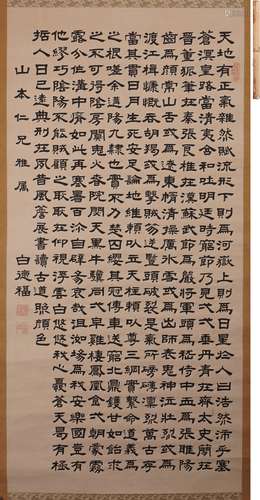 天地有正氣雜然賦流形下則爲河嶽上則爲日星於人曰浩然沛乎塞
蒼溟皇路當清夷含和吐明廷時窮節乃見弌弌垂丹青在齊太史簡在
晉董狐筆在秦張良椎在漢蘇武節爲嚴將軍頭爲嵇侍中血爲張睢陽
齒爲顏常山舌或爲遼東帽清操厲冰雪或爲出師表鬼神泣壯烈或爲
渡江楫慷慨吞胡羯或爲擊賊笏逆豎頭破裂是氣所磅礴凜烈萬古存
當其貫日月生死安足論地維賴以立天柱賴以尊三綱實繫命道義爲
之根嗟余遘陽九隸也實不力楚囚纓其冠傳車送窮北鼎鑊甘如飴求
之不可得陰房闃鬼火春院閟天黑牛驥同弌皁雞棲鳳凰食弌朝蒙霧
露分作溝中瘠如此再寒暑百沴自辟易嗟哉沮洳場爲我安樂國豈有
他繆巧陰陽不能賊顧此耿耿在仰視浮雲白悠悠我心悲蒼天曷有極
哲人日已遠典刑在夙昔風簷展書讀古道照顏色
山本仁兄雅属 白德福